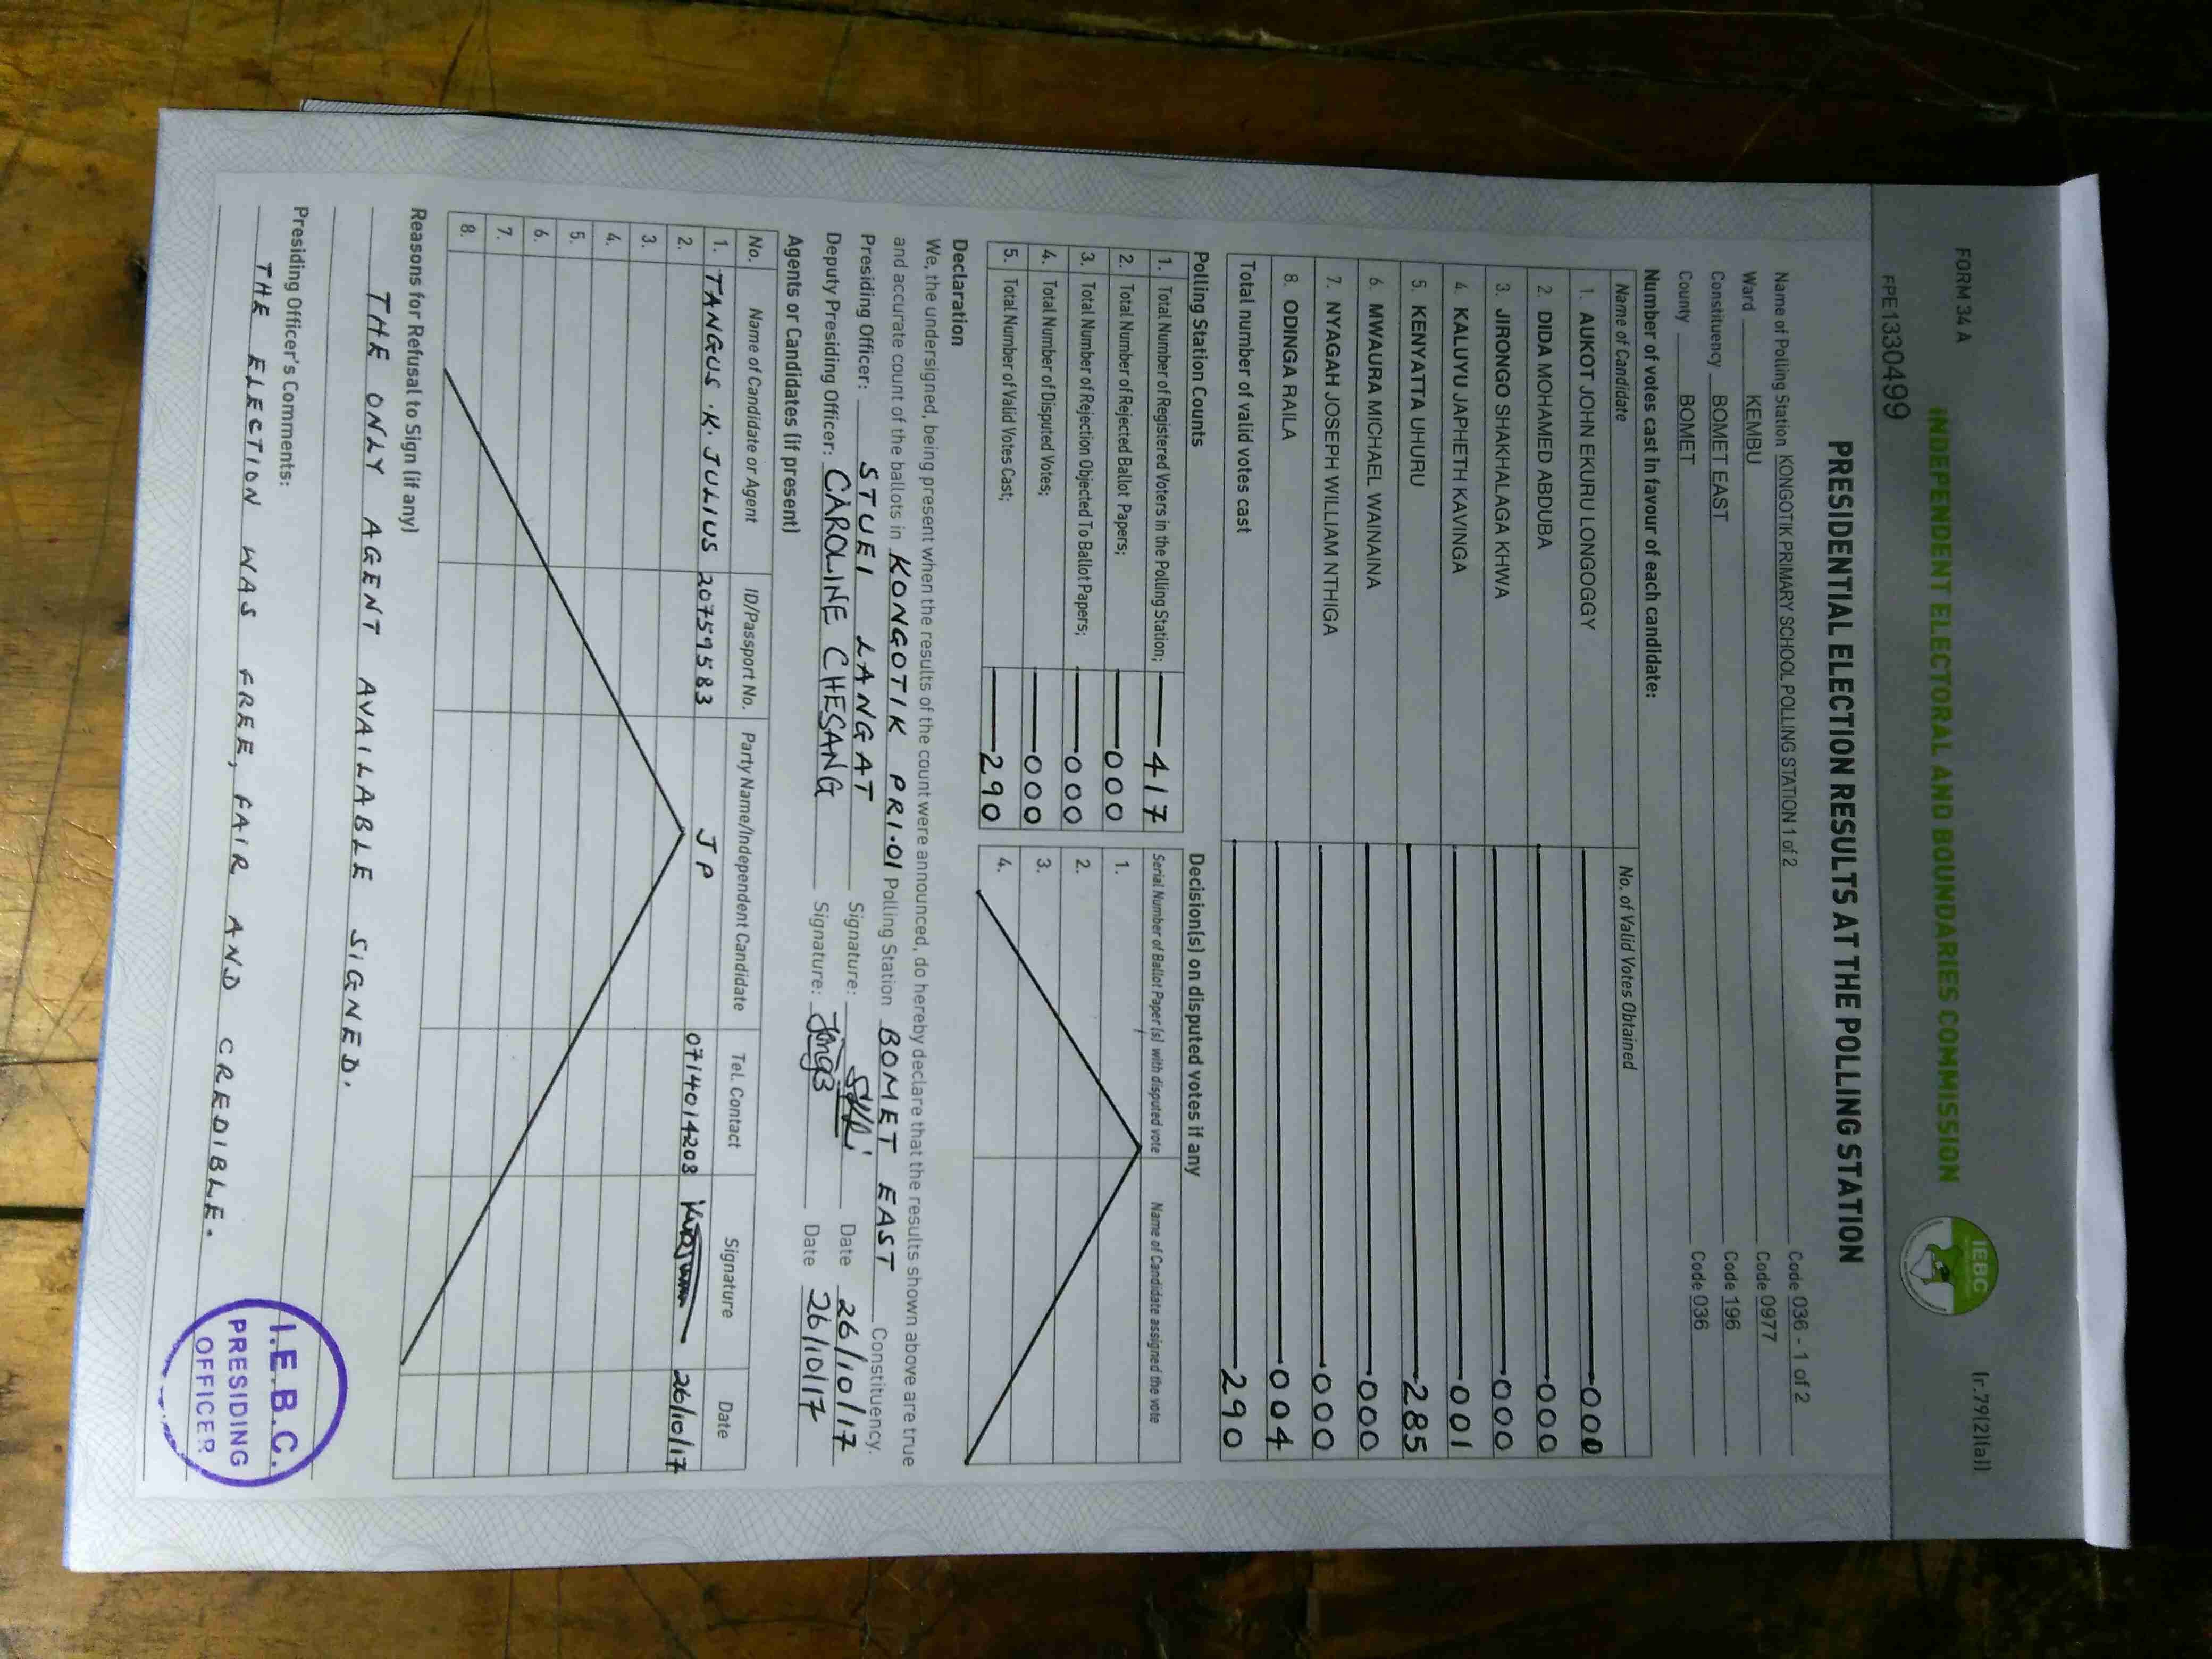 FORM 34A
(r.79(2)(a))
INDEPENDENT ELECTORAL AND BOUNDARIES COMMISSION
IEBC
PRE1330499
PRESIDENTIAL ELECTION RESULTS AT THE POLLING STATION
Name of Polling Station KONGOTIK PRIMARY SCHOOL POLLING STATION 1 of 2 Code 036 - 1 of 2
Ward KEMBU Code 0977
Constituency BOMET EAST Code 196
County BOMET Code 036
Number of votes cast in favour of each candidate:
Name of Candidate No. of Valid Votes Obtained
1. AUKOT JOHN EKURU LONGOGGY 000
2. DIDA MOHAMED ABDUBA 000
3. JIRONGO SHAKHALAGA KHWA 000
4. KALUYU JAPHETH KAVINGA 001
5. KENYATTA UHURU 285
6. MWAURA MICHAEL WAINAINA 000
7. NYAGAH JOSEPH WILLIAM NTHIGA 000
8. ODINGA RAILA 004
Total number of valid votes cast 290
Polling Station Counts Decision(s) on disputed votes if any
1. Total Number of Registered Voters in the Polling Station; 417 Serial Number of Ballot Paper (s) with disputed vote Name of Candidate assigned the vote
2. Total Number of Rejected Ballot Papers; 000 1.
3. Total Number of Rejection Objected To Ballot Papers; 000 2.
4. Total Number of Disputed Votes; 000 3.
5. Total Number of Valid Votes Cast; 290 4.
Declaration
We, the undersigned, being present when the results of the count were announced, do hereby declare that the results shown above are true
and accurate count of the ballots in KONGOTIK PRI.01 Polling Station BOMET EAST Constituency.
Presiding Officer: STUEI LANGAT Signature: Date 26/10/17
Deputy Presiding Officer: CAROLINE CHESANG Signature: Date 26/10/17
Agents or Candidates (if present)
No. Name of Candidate or Agent ID/Passport No. Party Name/Independent Candidate Tel. Contact Signature Date
1. TANGUS K. JULIUS 20759583 JP 0714014208 26/10/17
2.
3.
4.
5.
6.
7.
8.
Reasons for Refusal to Sign (if any)
THE ONLY AGENT AVAILABLE SIGNED.
Presiding Officer's Comments:
THE ELECTION WAS FREE, FAIR AND CREDIBLE.
I.E.B.C.
PRESIDING
OFFICER